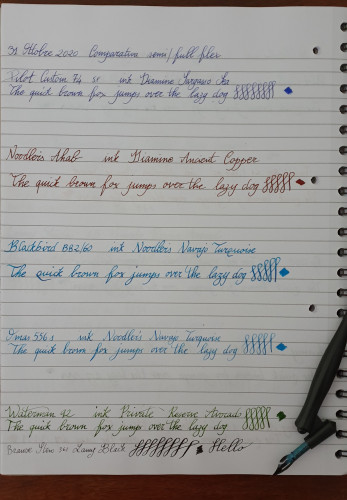 31 Ottobre 2020 Comparativa semi/full flex
Pilot Custom 74 ink Diamine Sargasso Sea
The quick brown fox jumps over the lazy dog
Noodler's Ahab ink Diamine Ancient Copper
The quick brown fox jumps over the lazy dog
Blackbird BB2/60 ink Noodler's Navajo Turquoise
The quick brown fox jumps over the lazy dog
Omas 556 s ink Noodler's Navajo Turquoise
The quick brown fox jumps over the lazy dog
Waterman 42 ink Private Reserve Avocado
The quick brown fox jumps over the lazy dog
Brause 361 Lamy Black Hello